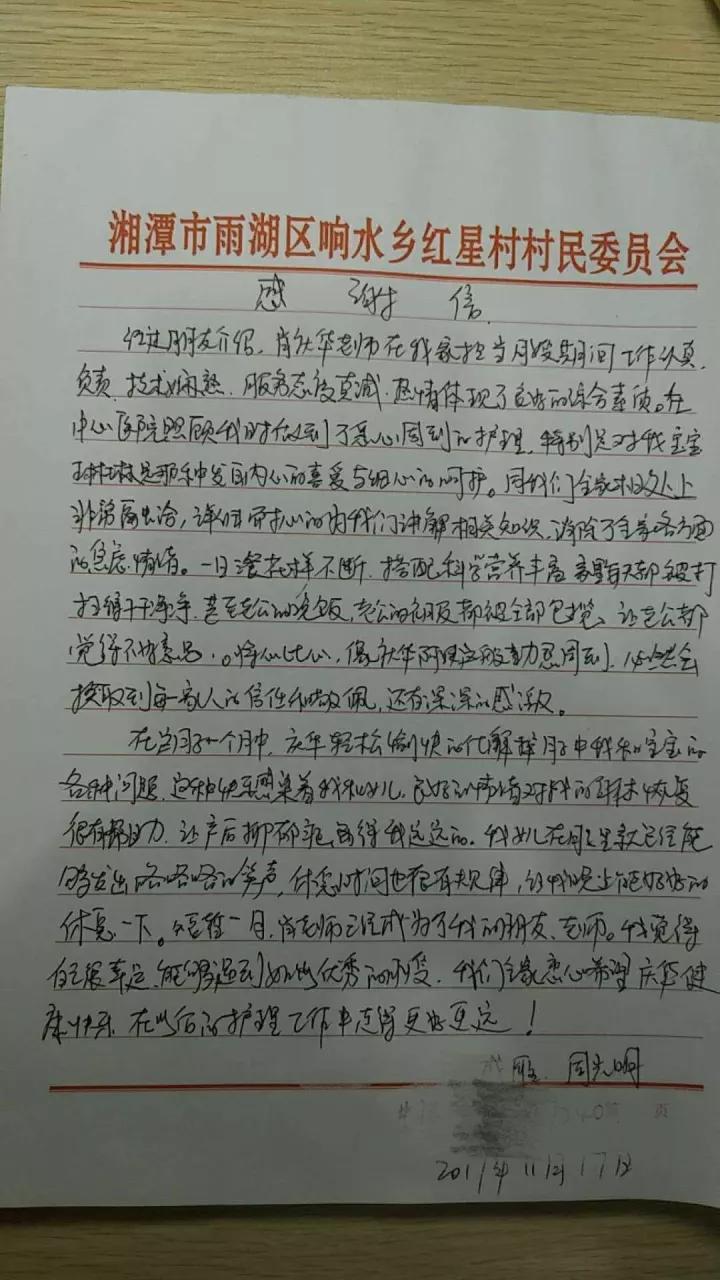 湘潭市雨湖区响水乡红星村村民委员会
感 谢 信
经过朋友介绍，肖庆华老师在我家担当月嫂期间工作认真
负责，技术娴熟，服务态度真诚，热情体现了良好的综合素质。在
中心医院照顾我时做到了悉心周到的护理，特别是对我宝宝
琳琳是那种发自内心的喜爱与细心的呵护。同我们全家相处上
非常融洽，详细而耐心的为我们讲解相关知识，消除了全家各方面
的焦虑情绪。一日餐花样不断，搭配科学营养丰富，家里每天都被打
扫得干干净净，甚至老公的晚饭，老公的衣服都被全部包揽，让老公都
觉得不好意思。将心比心，像庆华阿姨这般勤力思周到，必然会
换取到每一家人的信任和敬佩，还有深深的感激。
在当月子一个月中，庆华轻松愉快的化解掉月子中我和宝宝的
各种问题，这种快乐感染着我和女儿，良好的情绪对我的身体恢复
很有帮助力，让产后抑郁症离得我远远的。我女儿在月子里就已经能
够发出咯咯咯的笑声，休息时间也很有规律，让我晚上能好好的
休息一下。短暂一月，肖老师已经成为了我的朋友、老师。我觉得
自己很幸运，能够遇到如此优秀的月嫂，我们全家衷心希望庆华健
康快乐，在以后的护理工作中走得更好更远！
周光明
2017年11月17日